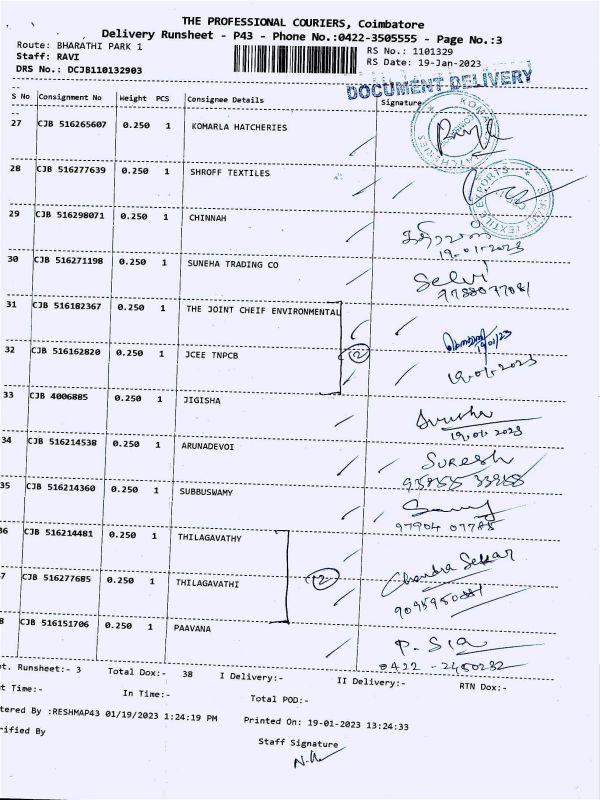 THE PROFESSIONAL COURIERS, Coimbatore
Delivery Runsheet - P43 - Phone No.:0422-3505555 - Page No.:3
Route: BHARATHI PARK 1
RS No.: 1101329
Staff: RAVI
RS Date: 19-Jan-2023
DRS No.: DCJB110132903
DOCUMENT DELIVERY
S No Consignment No Weight PCS Consignee Details Signature
27 CJB 516265607 0.250 1 KOMARLA HATCHERIES
28 CJB 516277639 0.250 1 SHROFF TEXTILES
29 CJB 516298071 0.250 1 CHINNAH
19-01-2023
30 CJB 516271198 0.250 1 SUNEHA TRADING CO
Selvi
31 CJB 516182367 0.250 1 THE JOINT CHEIF ENVIRONMENTAL
19/01/23
32 CJB 516162820 0.250 1 JCEE TNPCB
2
19-01-2023
33 CJB 4006885 0.250 1 JIGISHA
19.01.2023
34 CJB 516214538 0.250 1 ARUNADEVOI
Suresh
35 CJB 516214360 0.250 1 SUBBUSWAMY
97904 07785
36 CJB 516214481 0.250 1 THILAGAVATHY
Chandra Sekar
7 CJB 516277685 0.250 1 THILAGAVATHI
2
8 CJB 516151706 0.250 1 PAAVANA
P. Sia
0422 - 2450232
t. Runsheet:- 3 Total Dox:- 38 I Delivery:- II Delivery:- RTN Dox:-
t Time:- In Time:- Total POD:-
tered By :RESHMAP43 01/19/2023 1:24:19 PM Printed On: 19-01-2023 13:24:33
rified By
Staff Signature